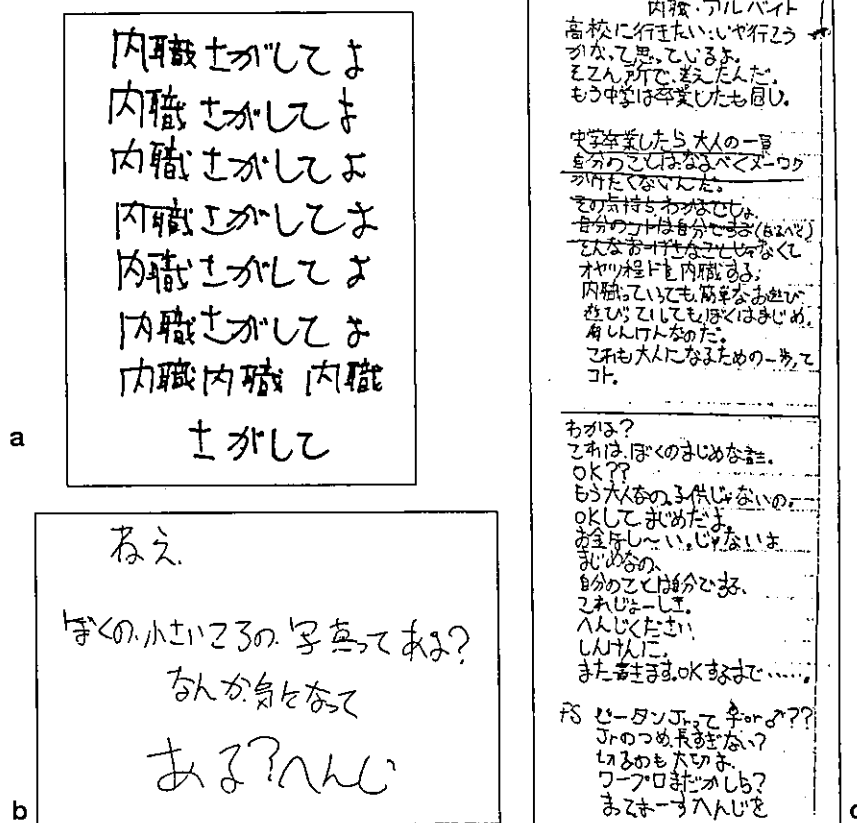 内職さがしてよ
内職さがしてよ
内職さがしてよ
内職さがしてよ
内職さがしてよ
内職さがしてよ
内職内職 内職
さがして
a
ねえ、
ぼくの、小さいころの、写真ってある?
なんか気になって
ある?へんじ
b
内職・アルバイト
高校に行きたい:いや行こう
かなって思っているよ。
そこん所で、考えたんだ。
もう中学は卒業したも同じ。
中学卒業したら、大人の一員
自分のことは、なるべくメーワク
かけたくないんだ。
その気持ち、わかるでしょ。
自分のコトは自分でするよ(なるべく)
そんなおーげさなことじゃなくて
オヤツ程ドを内職する。
内職っていっても、簡単なお遊び
遊びっていしても、ぼくはまじめ。
しんけんなのだ。
これも大人になるための一歩って
コト。
わかる?
これは、ぼくのまじめな話。
OK??
もう大人なの。子供じゃないの。
OKして。まじめだよ。
お金ほし〜い。じゃないよ
まじめなの、
自分のことは自分でする、
これじょーしき。
へんじください
しんけんに。
また書きます。OKするまで……。
PS ピータンJrって♀or♂??
Jrのつめ、長すぎない?
切るのも大切よ、
ワープロまだかしら?
まってまーすへんじを